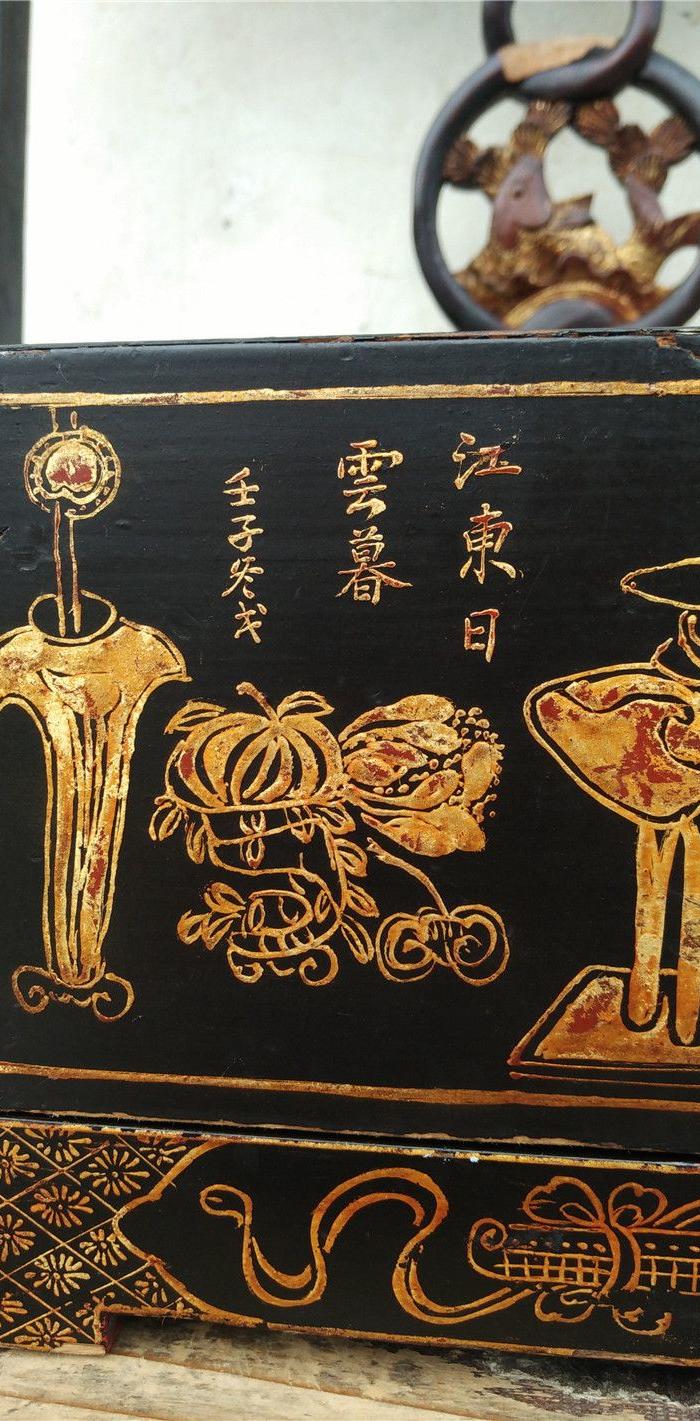 江東日
雲暮
壬子冬戈